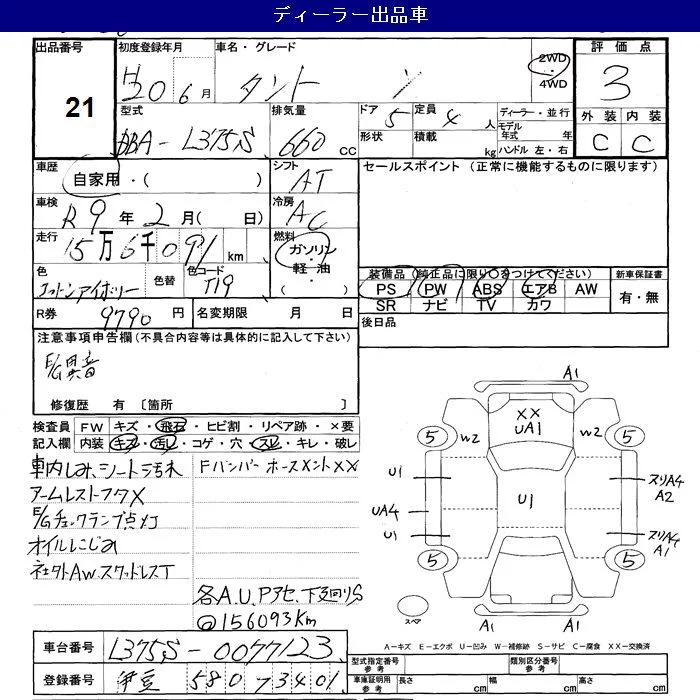 ディーラー出品車
出品番号 初度登録年月 車名・グレード 2WD 評価点
21
H20 6月 タント 4WD 3
型式 排気量 ドア 5 定員 4人 ディーラー・並行 外装 内装
DBA-L375S 660cc 形状 積載 kg モデル年式 年 C C
ハンドル 左・右
車歴 シフト セールスポイント (正常に機能するものに限ります)
自家用・( ) AT
車検 冷房
R9年2月( 日) AC
走行 燃料
15万6千091km ガソリン
色 色替 色コード 軽油 装備品 (純正品に限り○をつけてください) 新車保証書
コットンアイボリー T19 ( ) PS PW ABS エアB AW 有・無
SR ナビ TV カワ
R券 9790円 名変期限 月 日 後日品
注意事項申告欄(不具合内容等は具体的に記入して下さい)
E/G異音
修復歴 有 〔箇所 〕
検査員 FW キズ・飛石・ヒビ割・リペア跡・×要
記入欄 内装 キズ・汚レ・コゲ・穴・スレ・キレ・破レ
車内しみ、シート汚れ FバンパーホースメントXX
アームレストフタX
E/Gチェックランプ点灯
オイルにじみ
社外AW.スタッドレスT
各A.U.Pアセ、下廻りS
@156093Km
A1
XX
UA1
5 W2 W2 5
U1 U1 スリA4
A2
UA4
U1 スリA4
A1
5 5
スペア A1 A1
A=キズ E=エクボ U=凹み W=補修跡 S=サビ C=腐食 XX=交換済
車台番号 L375S-0077123
型式指定番号 参考 類別区分番号 参考
登録番号 伊豆 580 7340
車庫証明用 参考 長さ cm 幅 cm 高さ cm